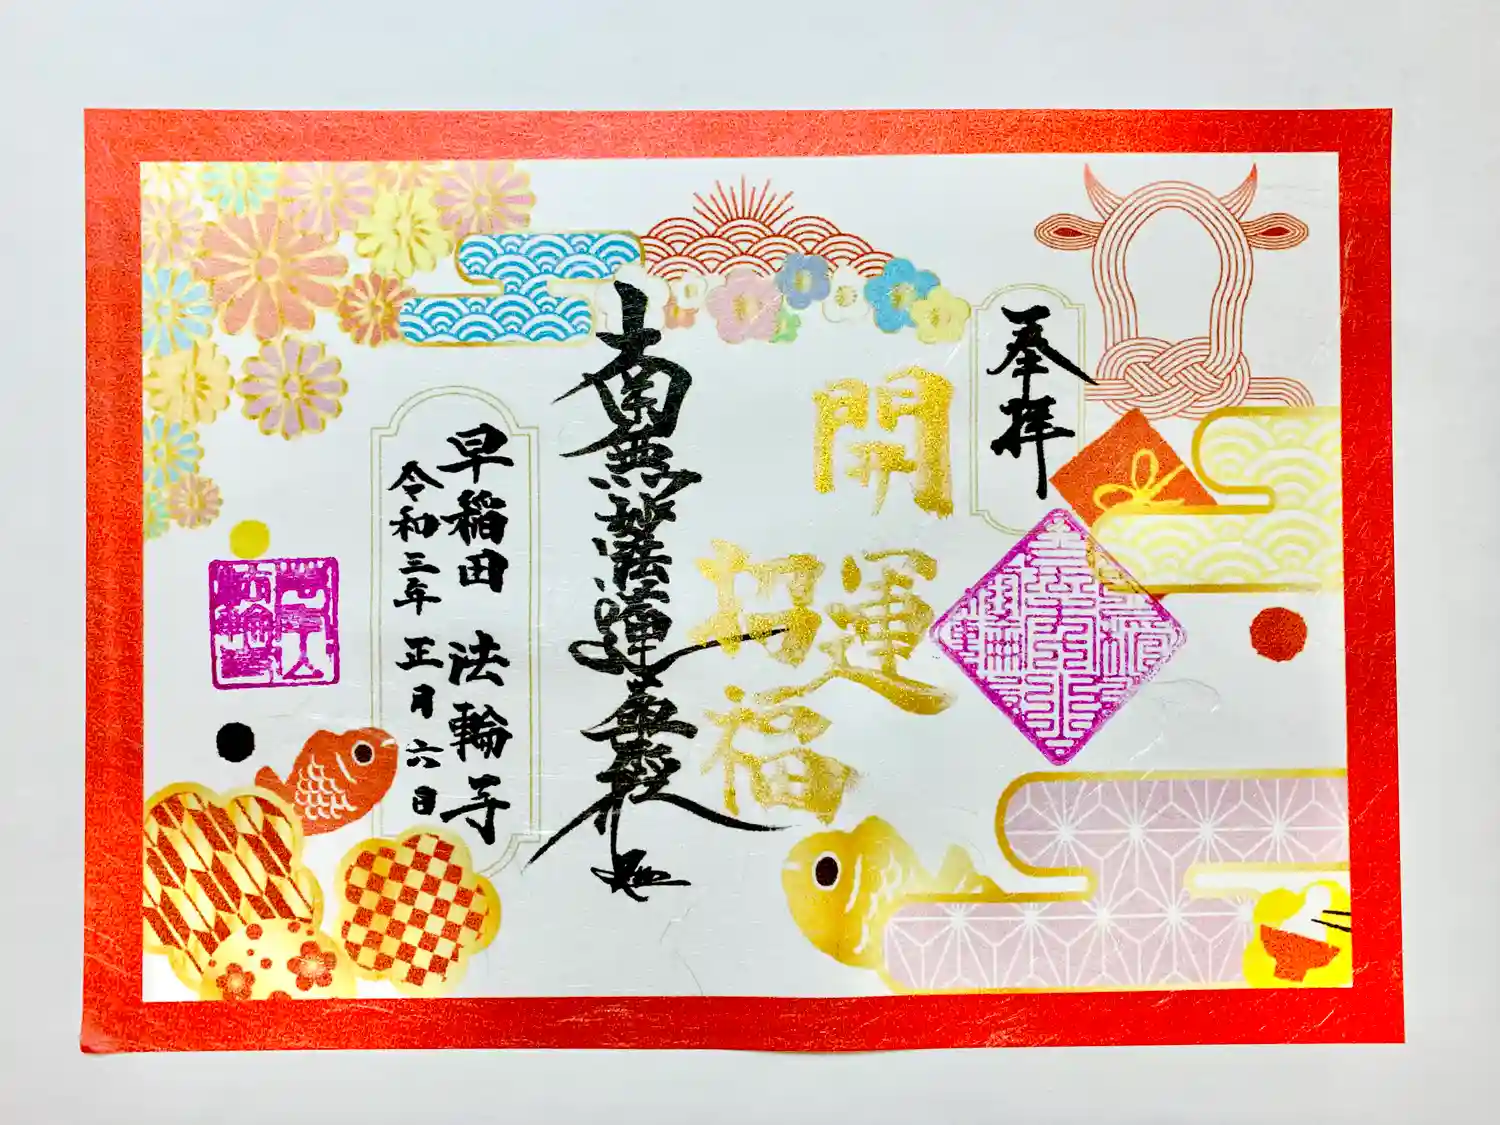 奉拝
開運
招福
南無妙法蓮華経
早稲田 法輪寺
令和三年 正月 六日